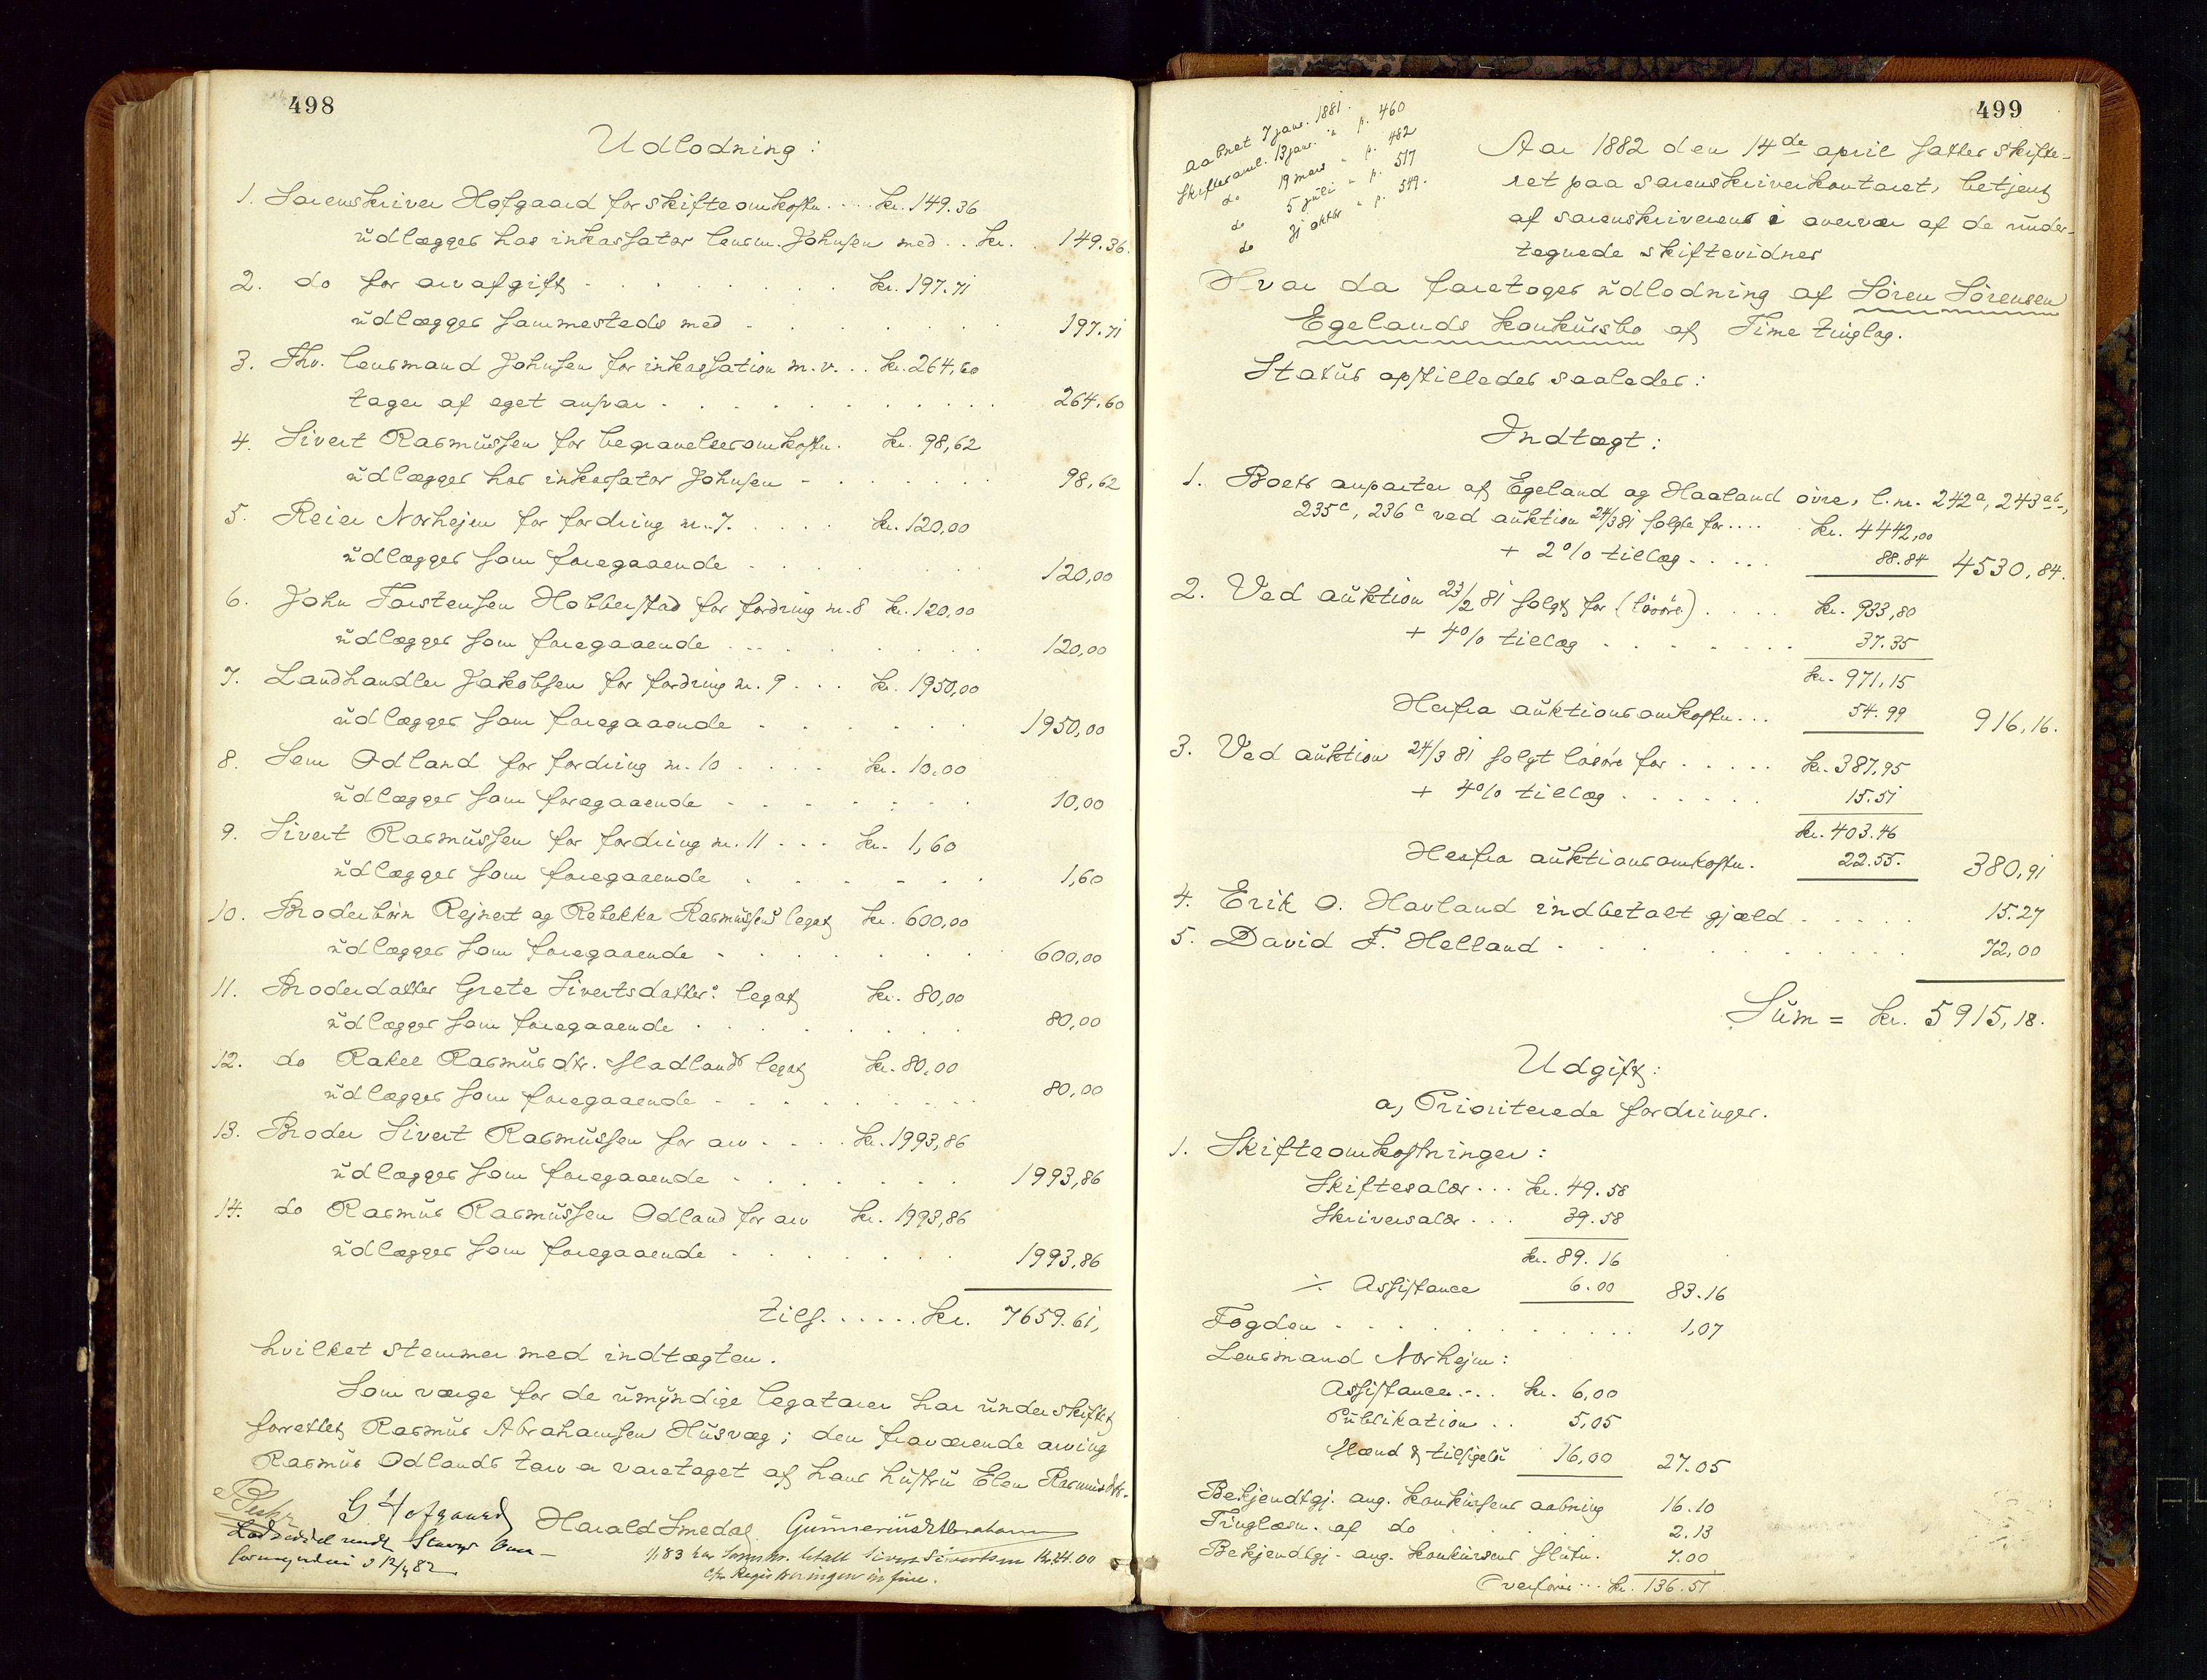 498
Udlodning:
1. Sorenskriver Hofgaard for skifteomkostn. ... kr. 149.36
udlægges hos inkassator lensm. Johnsen med .. kr. 149.36.
2. do for arvafgift . . . . . kr. 197.71
udlægges sammesteds med . . . . 197.71
3. Fhv. lensmand Johnsen for inkassation m.v. .. kr. 264,60
tager af eget ansvar . . . . . 264.60
4. Sivert Rasmussen for begravelsesomkostn. kr. 98,62
udlægges hos inkassator Johnsen . . . . 98,62
5. Reier Norhejm for fordring nr. 7. . . . kr. 120,00
udlægges som foregaaende . . . . 120,00
6. John Torstensen Hobberstad for fordring nr. 8 kr. 120,00
udlægges som foregaaende . . . . 120,00
7. Landhandler Jakobsen for fordring nr. 9 . . . kr. 1950,00
udlægges som foregaaende . . . . 1950,00
8. Sem Odland for fordring nr. 10 . . . . kr. 10,00
udlægges som foregaaende . . . . 10,00
9. Sivert Rasmussen for fordring nr. 11 . . . kr. 1,60
udlægges som foregaaende . . . . 1,60
10. Broderbörn Rejnert og Rebekka Rasmussens legat kr. 600,00
udlægges som foregaaende . . . . 600,00
11. Broderdatter Grete Sivertsdatters legat kr. 80,00
udlægges som foregaaende . . . . 80,00
12. do Rakel Rasmusdtr. Stadlands legat kr. 80,00
udlægges som foregaaende . . . . 80,00
13. Broder Sivert Rasmussen for arv . . . . kr. 1993,86
udlægges som foregaaende . . . . 1993,86
14. do Rasmus Rasmussen Odland for arv kr. 1993,86
udlægges som foregaaende . . . . 1993,86
tils. . . . . . kr. 7659.61,
hvilket stemmer med indtægten.
Som værge for de umyndige legatarer har under skiftet
forrettet Rasmus Abrahamsen Husvæg; den fraværende arving
Rasmus Odlands tarv er varetaget af hans hustru Elen Rasmusdtr.
G Hofgaard Harald Smedal Gunnerius Abrahamsen
1/1 83 har betalt Sivert Sivertsen kr. 24.00
cfr Registreringen in fine.
499
Aabnet 7 janr. 1881.
Skiftesaml. 13 janr. " p. 460
do 19 mars " p. 482
do 5 juli " p. 517
do 31 oktbr " p. 549.
Aar 1882 den 14de april satter skifte-
ret paa sorenskriverkontoret, betjent
af sorenskriverens i overvær af de under-
tegnede skiftevidner
Hvor da foretoges udlodning af Sören Sörensen
Egelands konkursbo af Time tinglag.
Status opstilledes saaledes:
Indtægt:
1. Boets anparter af Egeland og Haaland övre, l.nr. 242a, 243ab,
235c, 236c ved auktion 24/3 81 solgte for .... kr. 4442,00
+ 2% tillæg . . . . . 88.84 4530,84.
2. Ved auktion 23/2 81 solgt for (lösöre) . . . . kr. 933,80
+ 4% tillæg . . . . . . 37.35
kr. 971,15
Herfra auktionsomkostn. . . 54.99 916,16.
3. Ved auktion 24/3 81 solgt lösöre for . . . . . kr. 387,95
+ 4% tillæg . . . . . . 15.51
kr. 403.46
Herfra auktionsomkostn. 22.55. 380,91
4. Erik O. Havland indbetalt gjæld . . . . . 15.27
5. David F. Helland . . . . . . 72,00
Sum = kr. 5915,18.
Udgift:
a, Prioriterede fordringer.
1. Skifteomkostninger:
Skiftesalær ... kr. 49.58
Skriversalær . . . 39.58
kr. 89.16
÷ Assistance 6.00 83.16
Fogden . . . . . . 1,07
Lensmand Norhejm:
Assistance . . . kr. 6,00
Publikation . . 5,05
Mænd & tilsigelse 16,00 27.05
Bekjendtgj. ang. konkursens aabning 16.10
Tinglæsn. af do . . . . . 2.13
Bekjendtgj. ang. konkursens slutn. 7.00
Overföres ... kr. 136.51